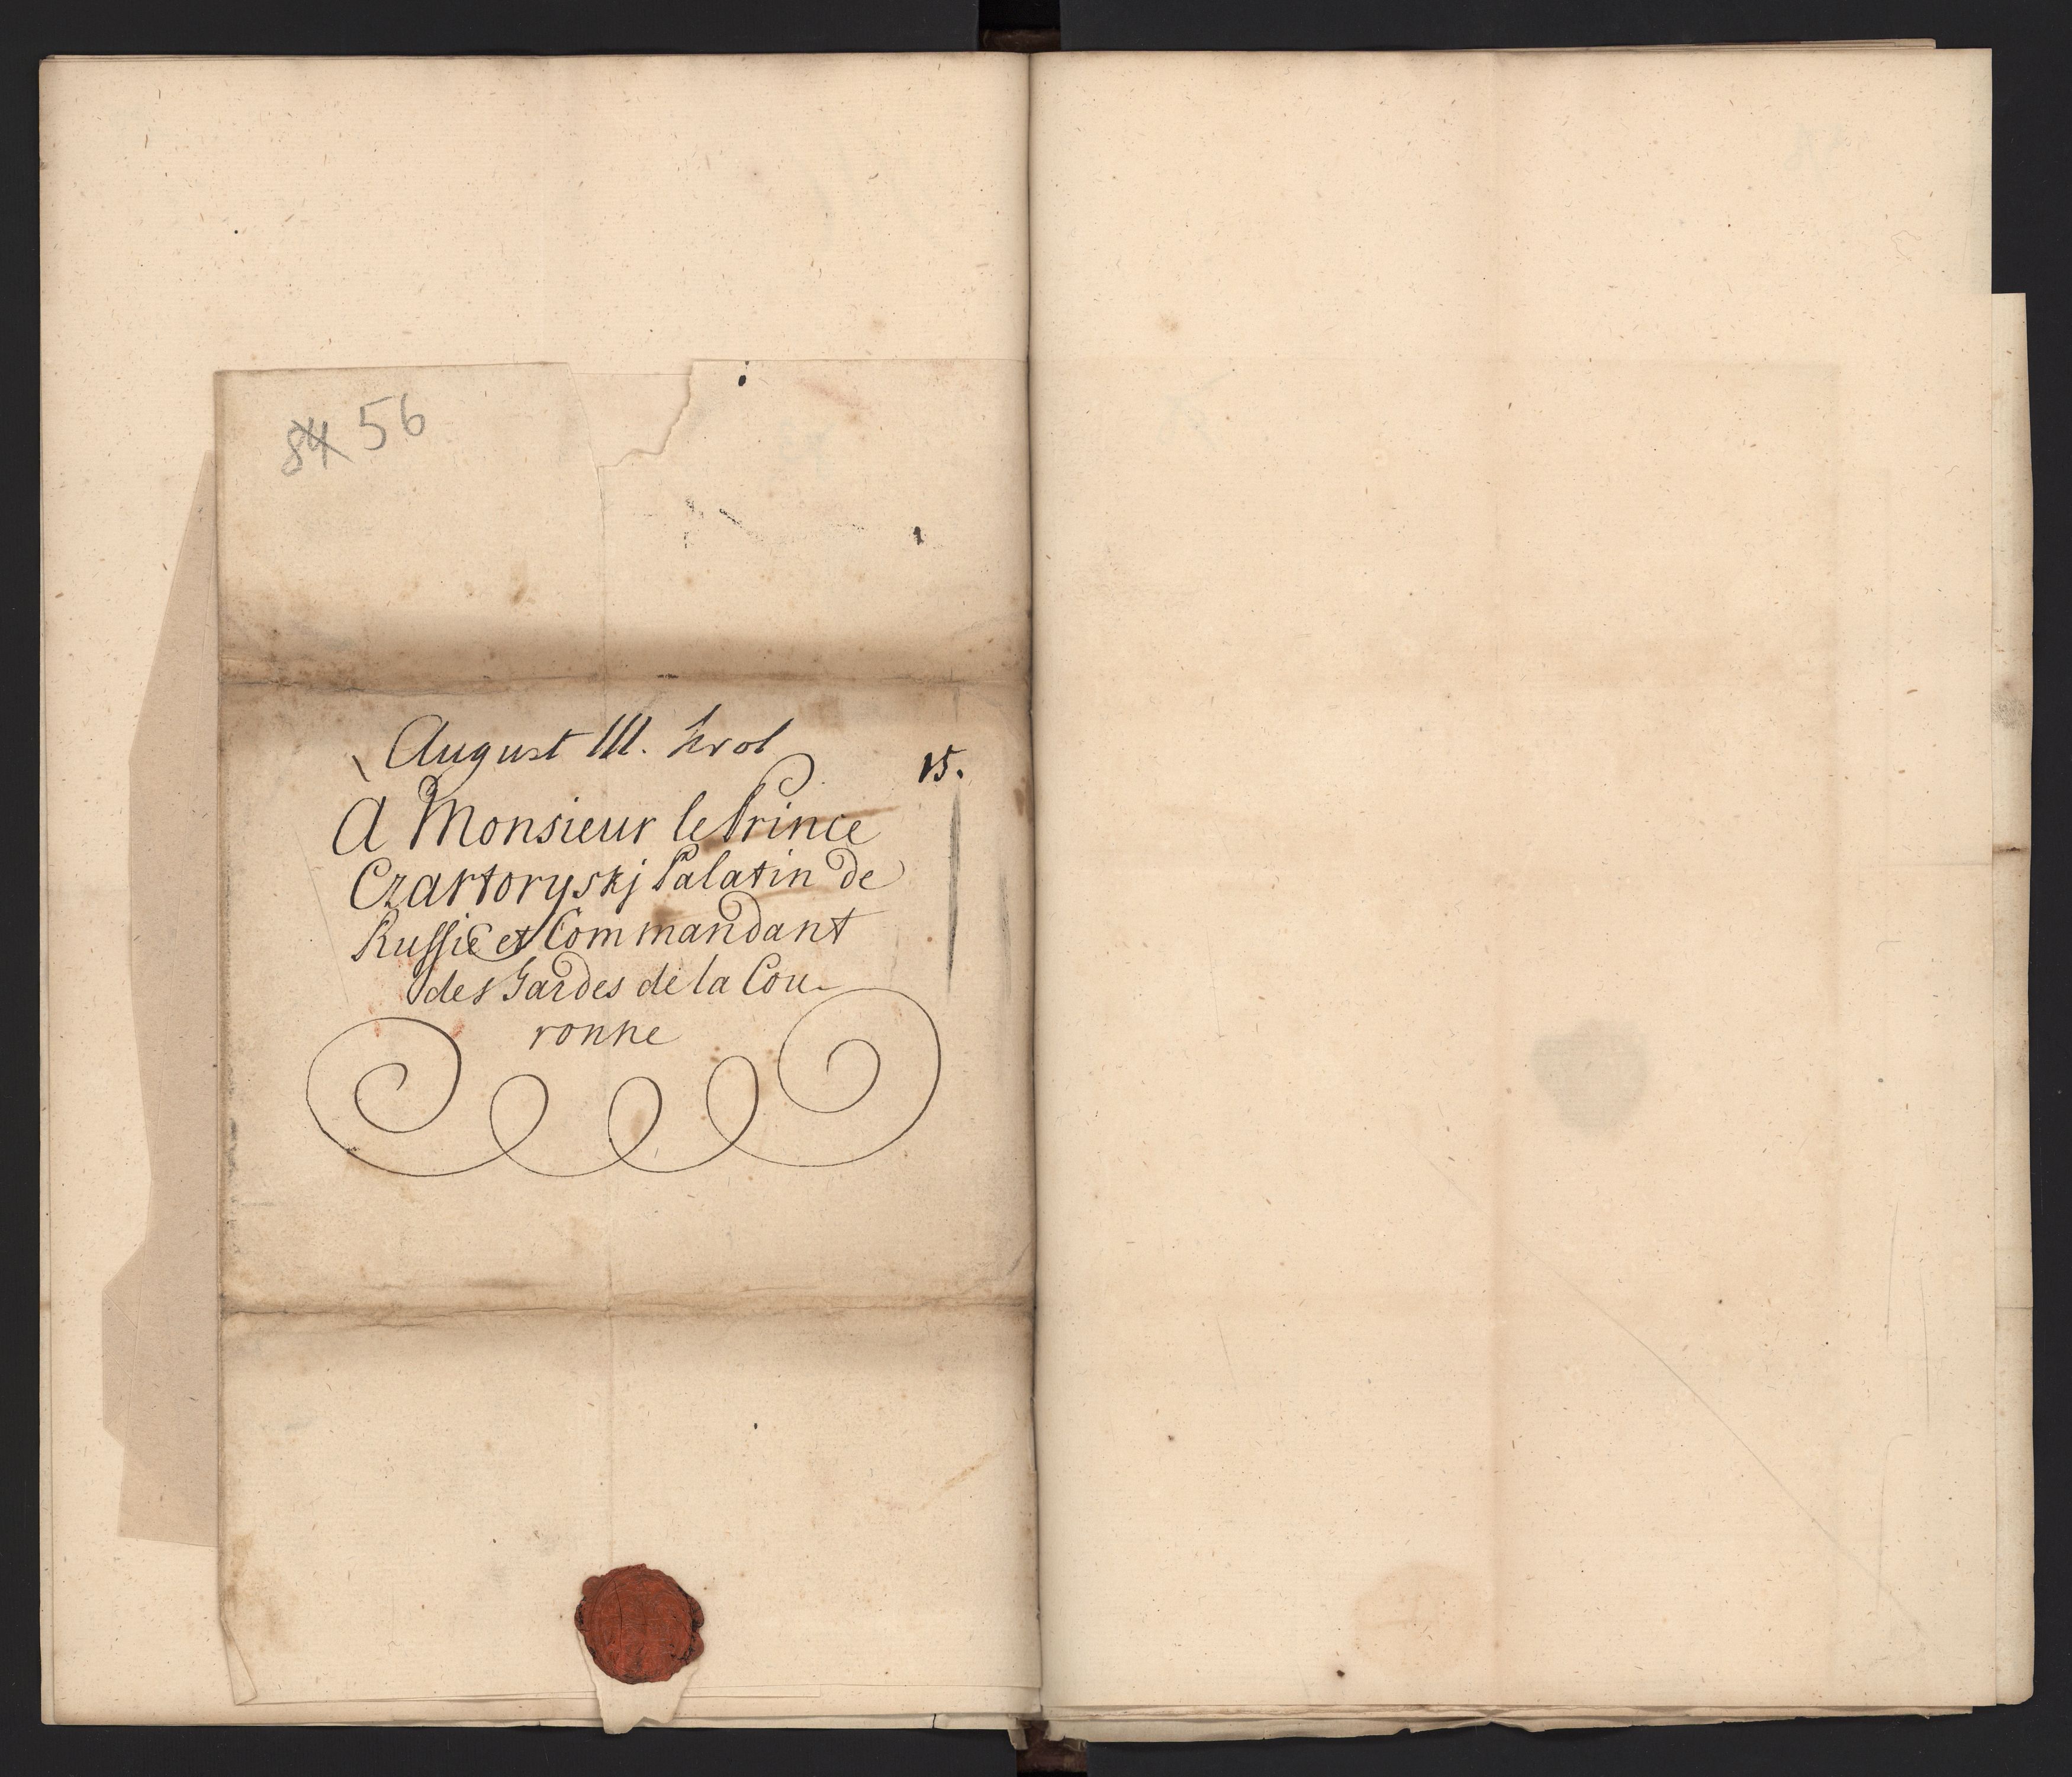 84 56
August III. krol
15.
A Monsieur le Prince
Czartoryskj Palatin de
Russie et Commandant
des Gardes de la Cou-
ronne